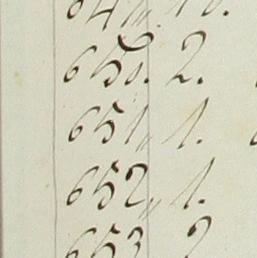 650. 2.
651,, 1.
652,, 1.
653 2